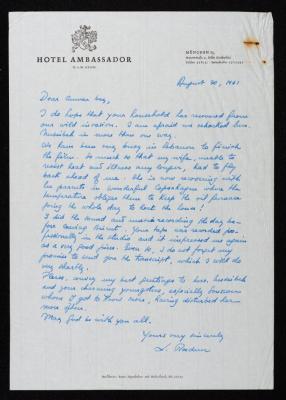 HOTEL AMBASSADOR
MÜNCHEN
August 30, 1961
Dear
I do hope that your household has recovered from
our wild invasion. I am afraid we exhausted Mrs.
in more than one way.
We have been very busy in Lebanon to finish
the film. So much so that my wife, unable to
resist heat and illness any longer, had to fly
back ahead of me. She is now recovering with
her parents in wonderful Copenhagen where the
temperature obliges them to keep the oil furnace
going the whole day to heat the house!
I did the sound and music recording the day be-
fore leaving Beirut. Your tape was recorded pro-
fessionally in the studio and it impressed me again
as a very good piece. Even so, I do not forget my
promise to send you the transcript, which I will do
very shortly.
Please, convey my best greetings to Mrs.
and your charming youngsters, especially
whom I got to know more, having disturbed her
more often.
May God be with you all.
Yours very sincerely